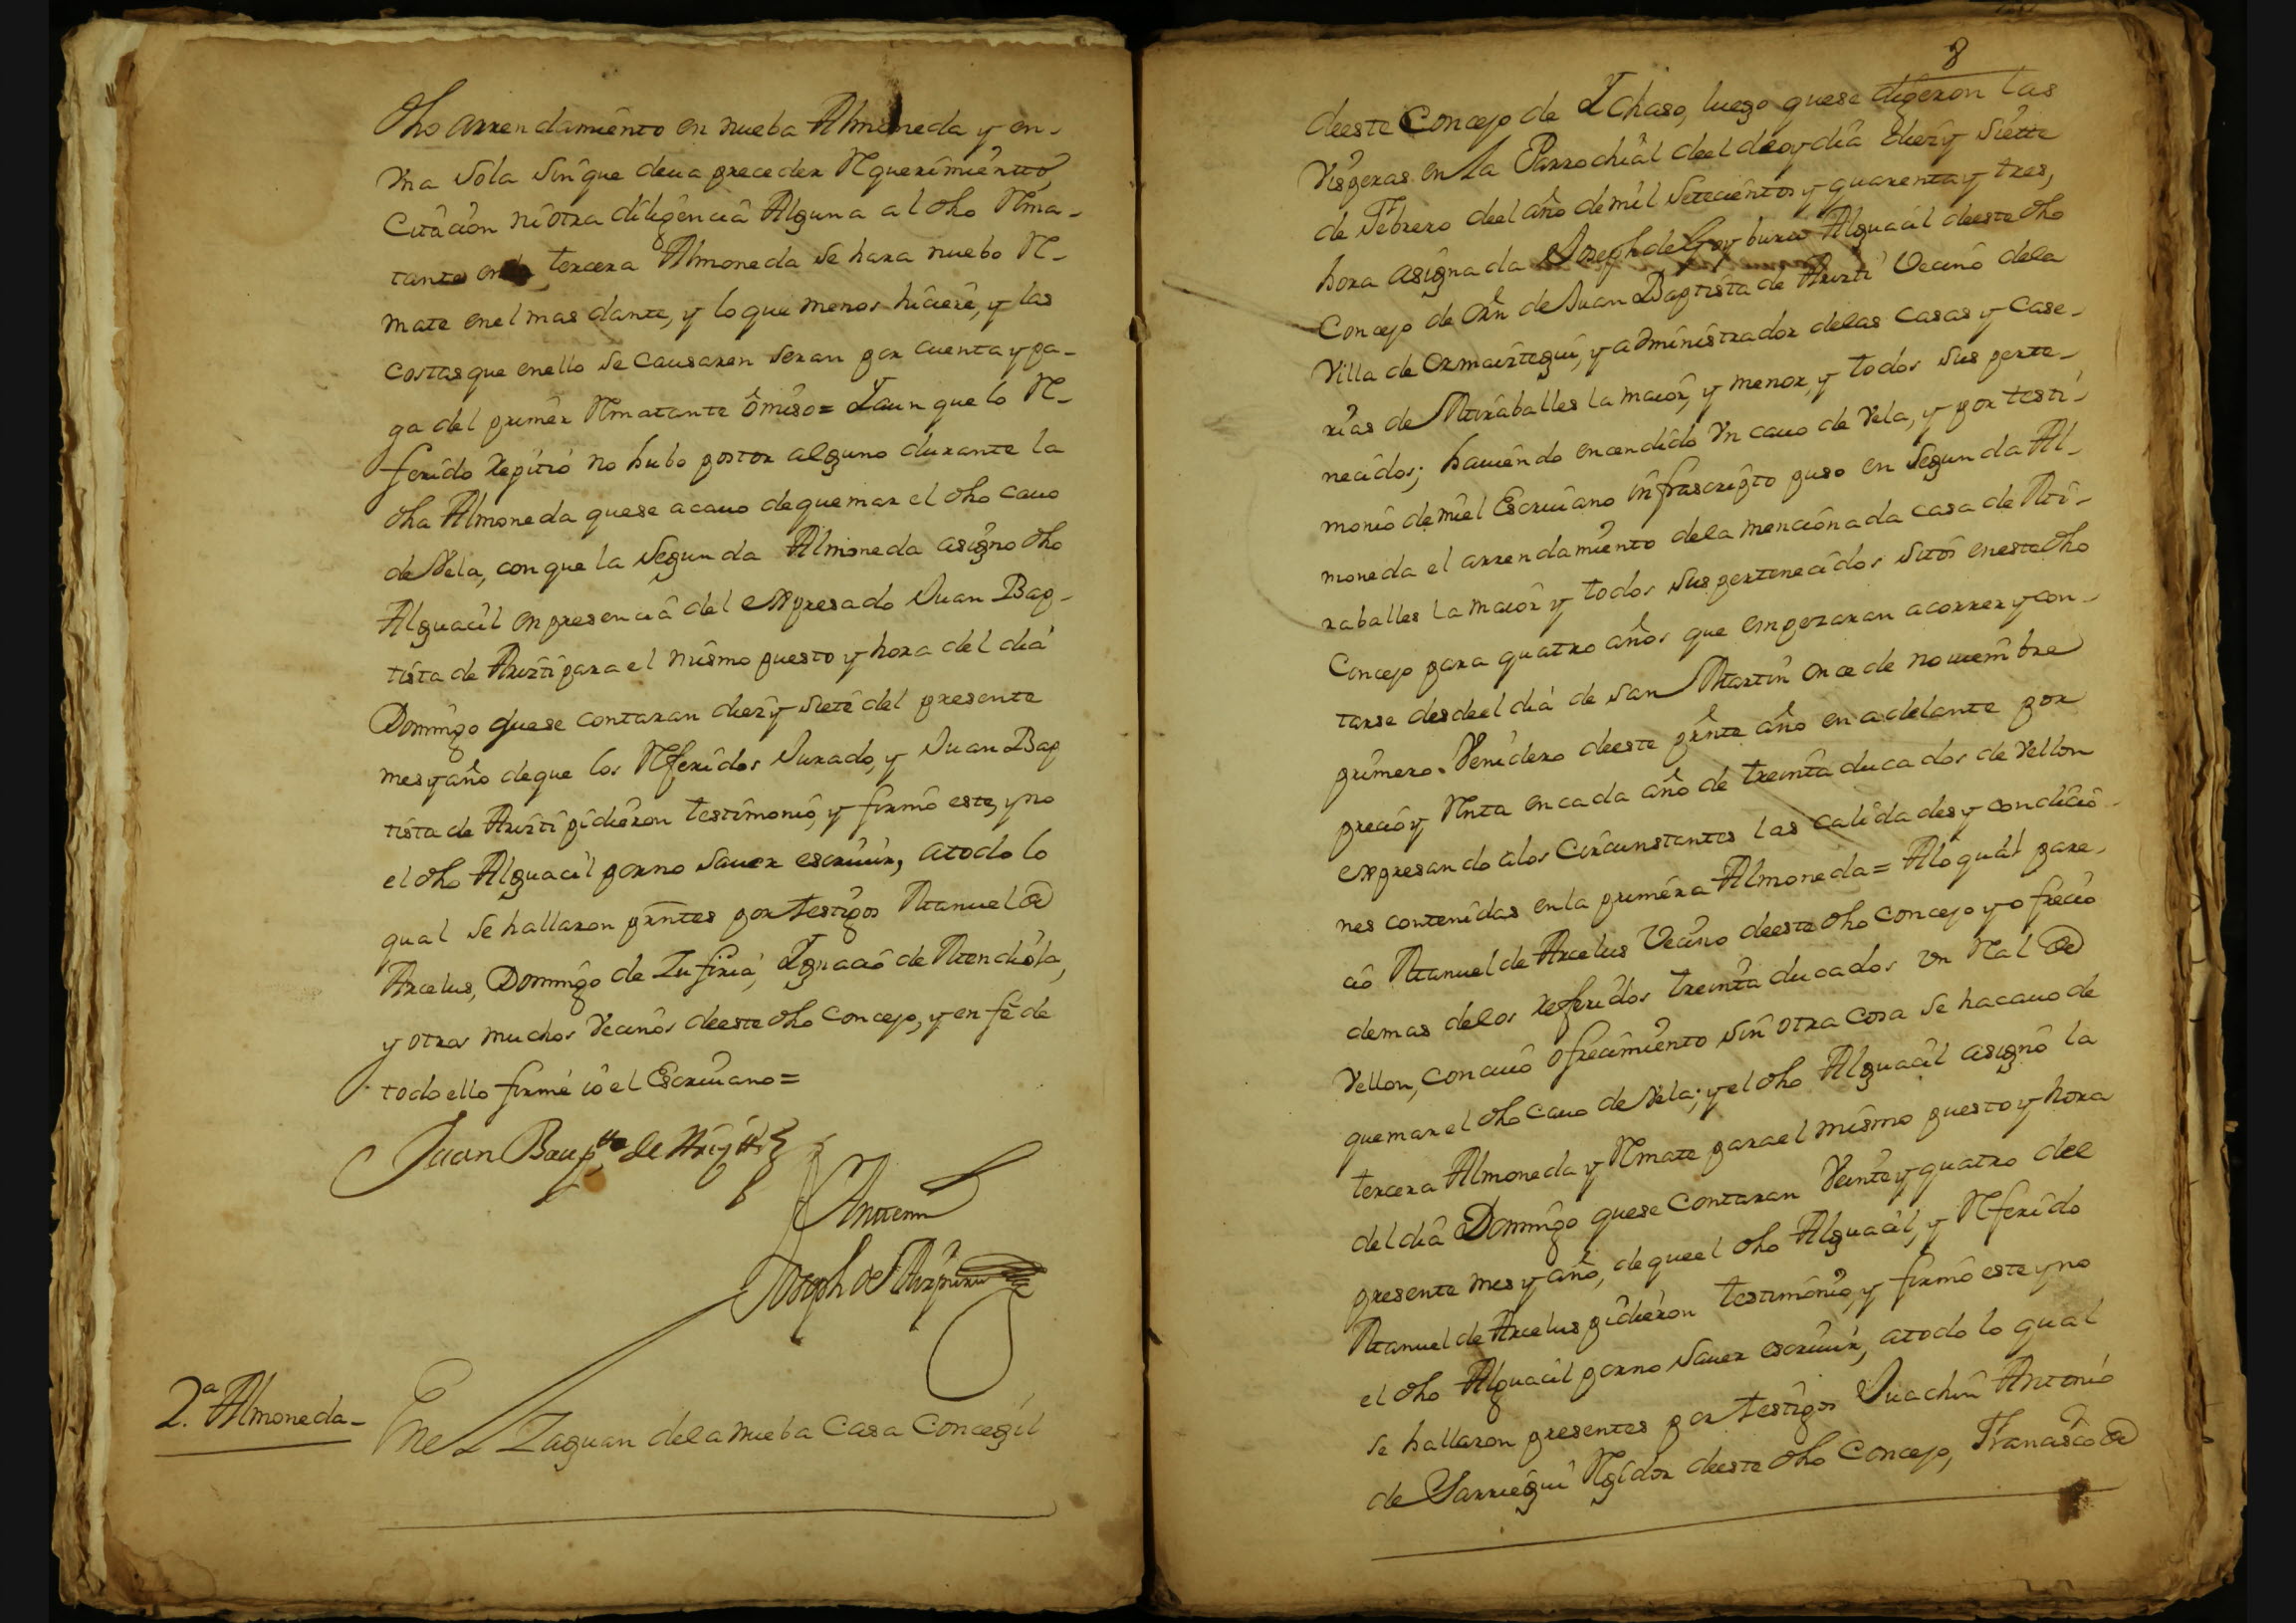 dho arrendamiento en nueba Almoneda y en-
Una sola sin que deua preceder Requerimientto,
Citación ni otra diligencia Alguna al dho Rema-
tante en la tercera Almoneda se hara nuebo Re-
mate en el mas dante, y lo que menos hiciere, y las
costas que en ello se Causaren seran por cuenta y pa-
ga del primer Rematante ômiso= Y aun que lo Re-
ferido repitió no hubo postor alguno durante la
dha Almoneda que se acauo de quemar el dho cauo
de Vela, con que la Segunda Almoneda asigno dho
Alguacil en presencia del expresado Juan Bap-
tista de Arizti para el mismo puesto y hora del dia
Domingo que se contaran diez y siete del presente
mes y año de que los Referidos Jurado, y Juan Bap
tista de Arizti pidieron testimonio, y firmó este, y no
el dho Alguacil por no sauer escriuir, a todo lo
qual se hallaron prntes por testigos Manuel de
Arcelus, Domingo de Zufiria, Ygnacio de Mendiola,
y otros muchos Vecinos de este dho Concejo, y en fé de
todo ello firmé ió el Escriuano=
Juan Baupta de Arizti
Antemi
Joseph de Aizpuru
2.ª Almoneda-
En el Zaguan de la nueba Casa Concegil
8
de este Concejo de Ychaso, luego que se digeron las
Visperas en la Parrochial de el de oy dia diez y siette
de Febrero de el año de mil setecientos y quarenta y tres,
hora asignada Joseph de Goyburu Alguacil de este dho
Concejo de orn de Juan Baptista de Arizti Vecino de la
Villa de Ormaiztegui, y administrador de las Casas y Case-
rias de Miraballes la maior, y menor, y todos sus perte-
necidos; hauiendo encendido Un cauo de Vela, y por testi-
monio de mi el Escriuano infrascripto puso en Segunda Al-
moneda el arrendamiento de la mencionada casa de Mi-
raballes la maior y todos sus pertenecidos sitos en este dho
Concejo para quatro años que empezaran a correr y con-
tarse desde el dia de San Martin once de nouiembre
primero Venidero de este prnte año en adelante por
precio y Renta en cada año de treinta ducados de Vellon
expresando a los Circunstantes las calidades y condicio-
nes contenidas en la primera Almoneda= A lo qual pare-
ció Manuel de Arcelus Vecino de este dho Concejo y ofreció
demas de los referidos treinta ducados Un Real de
Vellon, con cuio ofrecimiento sin otra cosa se hacauo de
quemar el dho cauo de Vela; y el dho Alguacil asignó la
tercera Almoneda y Remate para el mismo puesto y hora
del dia Domingo que se Contaran Veinte y quatro del
presente mes y año, de que el dho Alguacil, y Referido
Manuel de Arcelus pidieron testimonio, y firmó este y no
el dho Alguacil por no sauer escriuir, a todo lo qual
se hallaron presentes por testigos Juachin Antonio
de Sarriegui Regidor de este dho Concejo, Francisco de